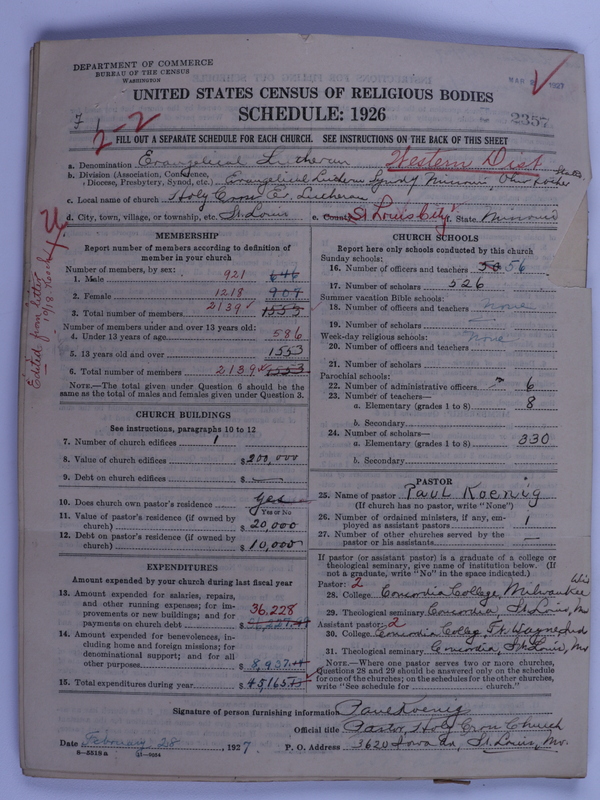 DEPARTMENT OF COMMERCE
BUREAU OF THE CENSUS
WASHINGTON
MAR 1927
UNITED STATES CENSUS OF RELIGIOUS BODIES
SCHEDULE: 1926
2357
2-2
FILL OUT A SEPARATE SCHEDULE FOR EACH CHURCH. SEE INSTRUCTIONS ON THE BACK OF THIS SHEET
a. Denomination Evangelical Lutheran Western Dist
b. Division (Association, Conference, Diocese, Presbytery, Synod, etc.) Evangelical Lutheran Synod Missouri, Ohio & other States
c. Local name of church Holy Cross Ev. Lutheran
d. City, town, village, or township, etc. St. Louis e. County St Louis City f. State Missouri
Edited from letter 10/18
MEMBERSHIP
Report number of members according to definition of
member in your church
Number of members, by sex:
1. Male 921 646
2. Female 1218 907
3. Total number of members 2139 1553
Number of members under and over 13 years old:
4. Under 13 years of age 586
5. 13 years old and over 1553
6. Total number of members 2139 1553
NOTE.—The total given under Question 6 should be the
same as the total of males and females given under Question 3.
CHURCH BUILDINGS
See instructions, paragraphs 10 to 12
7. Number of church edifices 1
8. Value of church edifices $ 200,000
9. Debt on church edifices $ —
10. Does church own pastor's residence yes
Yes or No
11. Value of pastor's residence (if owned by
church) $ 20,000
12. Debt on pastor's residence (if owned by
church) $ 10,000
EXPENDITURES
Amount expended by your church during last fiscal year
13. Amount expended for salaries, repairs,
and other running expenses; for im-
provements or new buildings; and for
payments on church debt $ 36,228
14. Amount expended for benevolences, in-
cluding home and foreign missions; for
denominational support; and for all
other purposes $ 8,937
15. Total expenditures during year $ 45,165
CHURCH SCHOOLS
Report here only schools conducted by this church
Sunday schools:
16. Number of officers and teachers 56
17. Number of scholars 526
Summer vacation Bible schools:
18. Number of officers and teachers none
19. Number of scholars
Week-day religious schools:
20. Number of officers and teachers none
21. Number of scholars
Parochial schools:
22. Number of administrative officers 6
23. Number of teachers—
a. Elementary (grades 1 to 8) 8
b. Secondary
24. Number of scholars—
a. Elementary (grades 1 to 8) 330
b. Secondary
PASTOR
25. Name of pastor Paul Koenig
(If church has no pastor, write "None")
26. Number of ordained ministers, if any, em-
ployed as assistant pastors 1
27. Number of other churches served by the
pastor or his assistants —
If pastor (or assistant pastor) is a graduate of a college or
theological seminary, give name of institution below. (If
not a graduate, write "No" in the space indicated.)
Pastor: 2
28. College Concordia College, Milwaukee Wis
29. Theological seminary Concordia, St. Louis, Mo
Assistant pastor: 2
30. College Concordia Colleg Ft. Wayne Ind
31. Theological seminary Concordia, St. Louis, Mo
NOTE.—Where one pastor serves two or more churches,
Questions 28 and 29 should be answered only on the schedule
for one of the churches; on the schedules for the other churches,
write "See schedule for church."
Signature of person furnishing information Paul Koenig
Official title Pastor Holy Cross Church
Date February 28 1927 P. O. Address 3620 Iowa Av, St. Louis, Mo.
8—5518a 11—9084